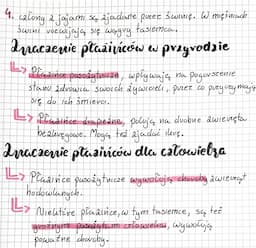 4. człony z jajami są zjadane przez świnię. W mięśniach
świni rozwijają się wągry tasiemca.
Znaczenie płazińców w przyrodzie
Płazińce pasożytnicze, wpływają na pogorszenie
stanu zdrowia swoich żywicieli, przez co przyczyniają
się do ich śmierci.
Płazińce drapieżne, polują na drobne zwierzęta
bezkręgowe. Mogą też zjadać ikrę.
Znaczenie płazińców dla człowieka
Płazińce pasożytnicze wywołują choroby zwierząt
hodowlanych.
Niektóre płazińce, w tym tasiemce, są też
groźnymi pasożytami człowieka, wywołują
poważne choroby.